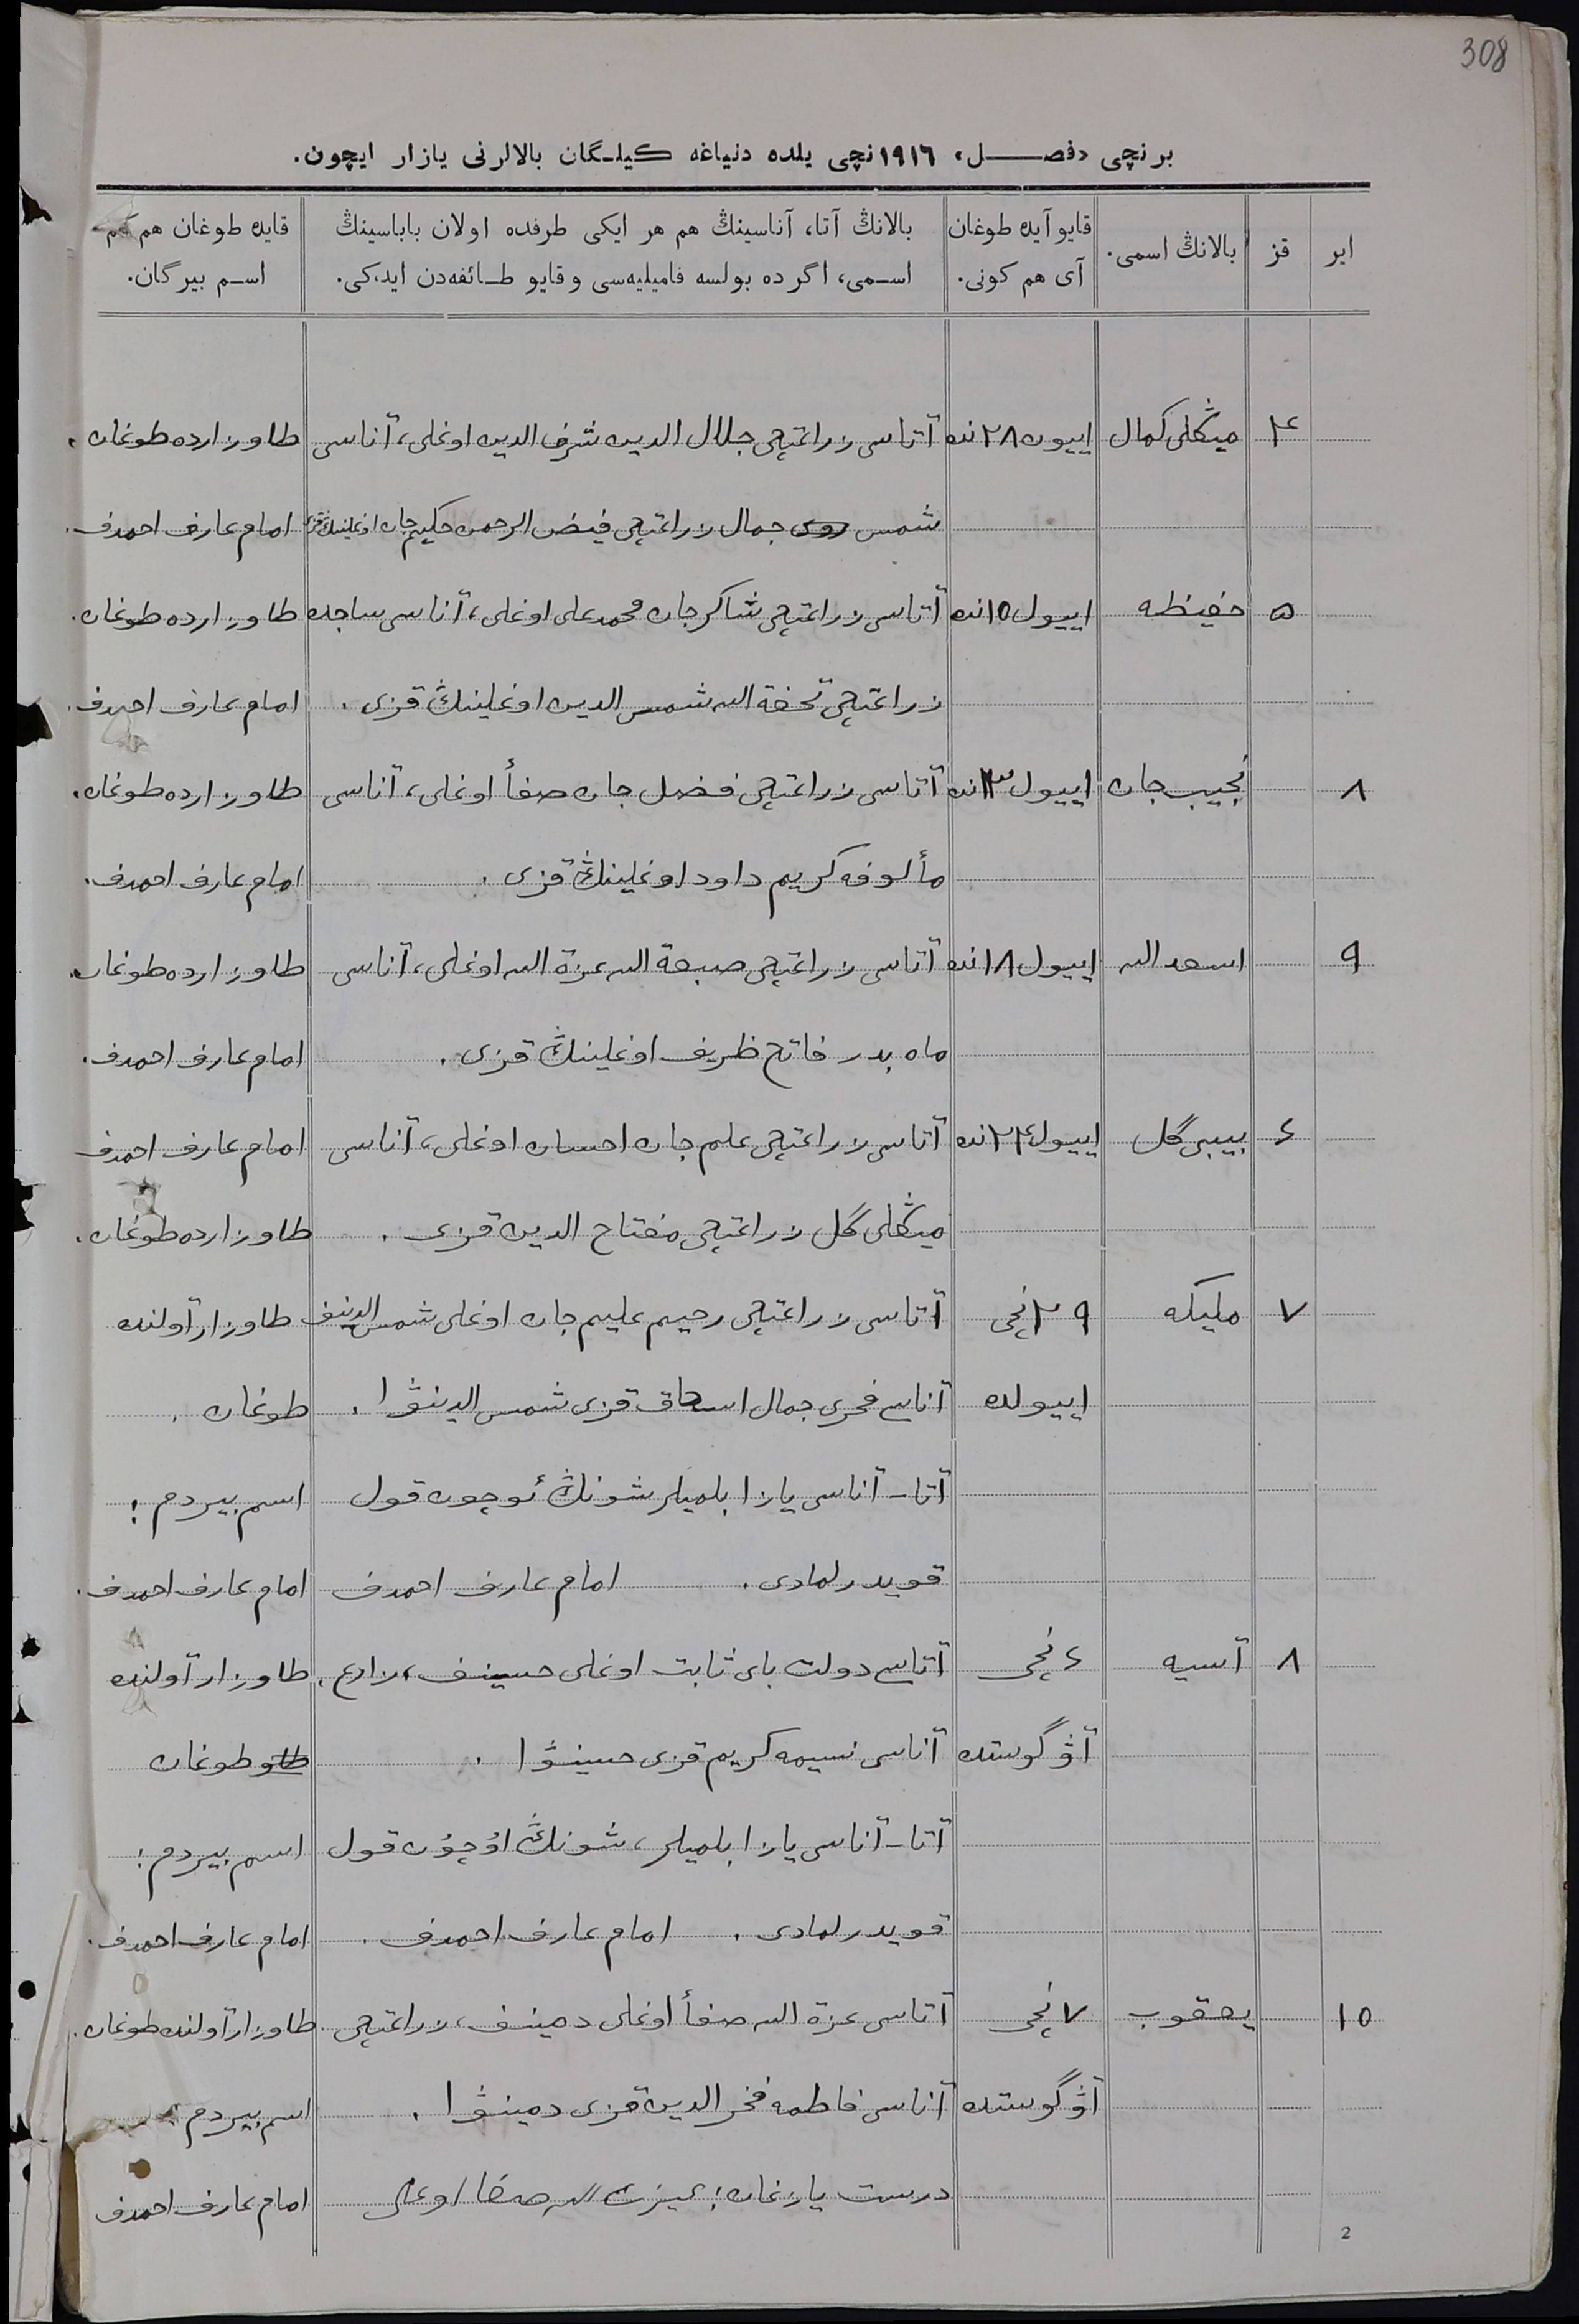 308
برنچی «فصل» ١٩١٦نچی یلده دنیاغه کیلگان بالالرنی یازار ایچون.
ایر قز بالانڭ اسمی. قایو آیده طوغان بالانڭ آتا، آناسینڭ هم هر ایکی طرفده اولان باباسینڭ قایده طوغان هم کم
آی هم کونی. اسمی، اگرده بولسه فامیلیه‌سی و قایو طائفه‌دن ایدکی. اسم بیرگان.
۴ مینڭلی کمال اییون ٢٨نده آتاسی زراعتچی جلال الدین شرف الدین اوغلی، آناسی طاوزارده طوغان.
شمس روی جمال زراعتچی فیض الرحمن حکیم جان اوغلینڭ قزی امام عارف احمدف.
۵ حفیظه اییول ١٥نده آتاسی زراعتچی شاکرجان محمدعلی اوغلی، آناسی ساجده طاوزارده طوغان.
زراعتچی تحفة الله شمس الدین اوغلینڭ قزی. امام عارف احمدف.
٨ نجیب جان اییول ١٣نده آتاسی زراعتچی فضل جان صفأ اوغلی، آناسی طاوزارده طوغان.
مألوفه کریم داود اوغلینڭ قزی. امام عارف احمدف.
٩ اسعد الله اییول ١٨نده آتاسی زراعتچی صبغة الله عزة الله اوغلی، آناسی طاوزارده طوغان.
ماه بدر فاتح ظریف اوغلینڭ قزی. امام عارف احمدف.
۶ بیبی گل اییول ٢۴نده آتاسی زراعتچی علم جان احسان اوغلی، آناسی امام عارف احمدف
مینڭلی گل زراعتچی مفتاح الدین قزی. طاوزارده طوغان.
٧ ملیکه ٢٩نچی آتاسی زراعتچی رحیم علیم جان اوغلی شمس الدینف طاوزار آولنده
اییولده آناسی فخری جمال اسحاق قزی شمس الدینوا. طوغان.
آتا-آناسی یازا بلمیلر شونڭ ئوچون قول اسم بیردم؛
قویدرلمادی. امام عارف احمدف امام عارف احمدف.
٨ آسیه ۶نچی آتاسی دولت بای ثابت اوغلی حسینف، زارع. طاوزار آولنده
آوگوستده آناسی نسیمه کریم قزی حسینوا. طاو طوغان
آتا-آناسی یازا بلمیلر، شونڭ اۇچۇن قول اسم بیردم؛
قویدرلمادی. امام عارف احمدف. امام عارف احمدف.
١٥ یعقوب ٧نچی آتاسی عزة الله صفأ اوغلی دمینف، زراعتچی. طاوزار آولنده طوغان.
آوگوستده آناسی فاطمه فخرالدین قزی دمینوا. اسم بیردم؛
درست یازغان: عیزت الله صفا اوغلی امام عارف احمدف
2